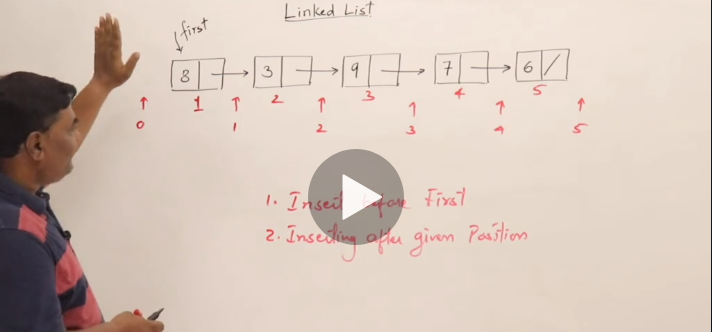 Linked List
first
8 3 9 7 6 /
1 2 3 4 5
0 1 2 3 4 5
1. Insert before First
2. Inserting after given Position